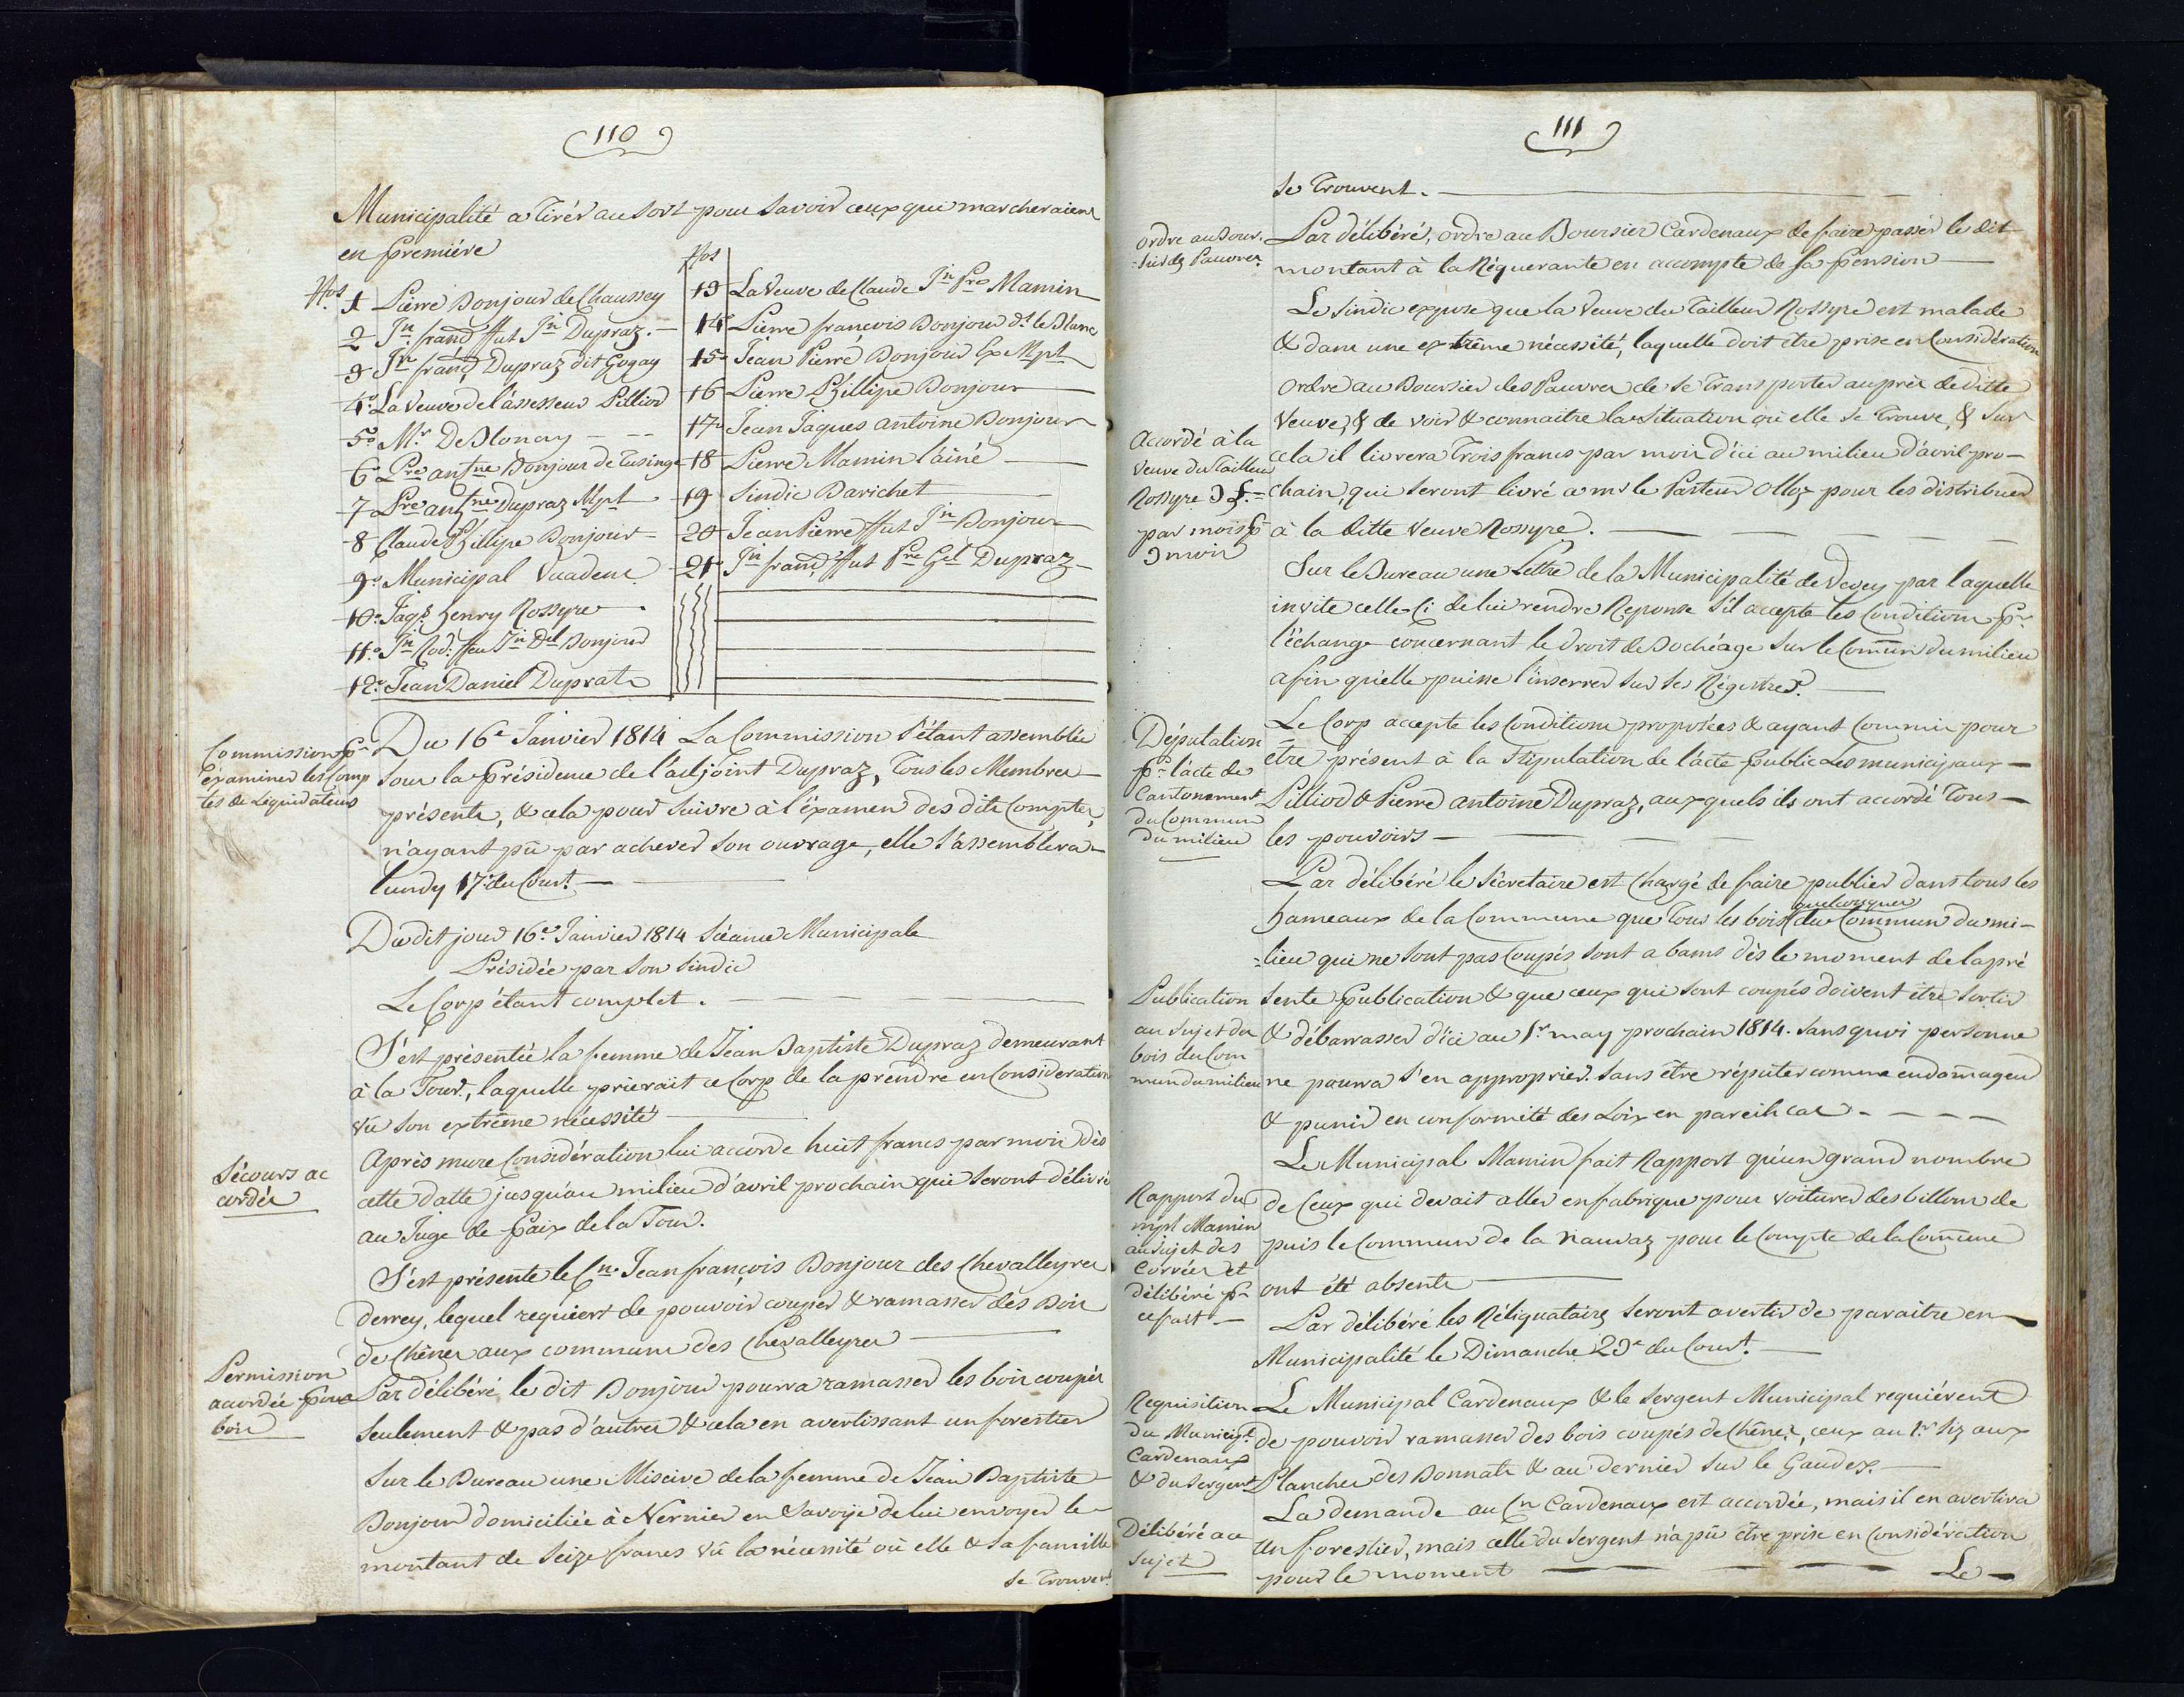 110
Municipalité a tirér au sort pour savoir ceux qui marcheraient
en première
Nos
1 Pierre Bonjour de Chaussey
2 Jn. frand ffut Jn Dupraz. —
3 Jn frand Dupraz dit Gogay
4o La Veuve de l'assesseur Pilliod
5o Mr. DeBlonay — --
6 Pre antne Bonjour de Tusinge
7 Pre antne Dupraz Mpl
8 Claude Phillipe Bonjour =
9o Municipal Vuadens
10o Jaqs. henry Rossyre .
11o Jn Rod. ffeu Jn Del Bonjour
12o Jean Daniel Duprat
Nos
13 La Veuve de Claude Jn Pre Mamin
14 Pierre françois Bonjour dt le Blanc
15o Jean Pierre Bonjour Ex Mpl
16 Pierre Phillipe Bonjour
17o Jean Jaques antoine Bonjour
18 Pierre Mamin l'ainé
19 Sindic Barichet
20 Jean Pierre ffut Jn Bonjour
21 Jn frand ffut Pre Gel Dupraz
Commission pr
éxaminer les comp
tes de Liquidateurs
Du 16e Janvier 1814 La Commission s'étant assemblée
sous la Présidence de l'adjoint Dupraz, tous les Membres
présents, & cela pour suivre à l'éxamen des dits Comptes,
n'ayant pû par achever son ouvrage, elle s'assemblera
lundy 17e du Court. —
Du dit jour 16e. Janvier 1814 Séance Municipale
Présidée par son Sindic
Le Corp étant complet. —
S'est présentée la femme de Jean Baptiste Dupraz demeurant
à la Tour, laquelle prierait ce Corp de la prendre en Consideration
vû son extrême nécessité
Sécours ac
cordés
Après mure Considération lui accorde huit francs par mois dès
cette datte jusqu'au milieu d'avril prochain qui seront délivré
au Juge de Paix de la Tour.
S'est présente le Cn. Jean françois Bonjour des Chevalleyres
derrey, lequel requiert de pouvoir couper & ramasser des Bois
de Chênes aux communs des Chevalleyres
Permission
accordée pour
bois
Par délibéré le dit Bonjour pourra ramasser les bois coupés
seulement & pas d'autres & cela en avertissant un forestier
Sur le Bureau une Miscive de la femme de Jean Baptiste
Bonjour domiciliée à Nernier en Savoye de lui envoyer le
montant de Seize francs vû la nécessité où elle & sa famille
se trouvent
111
se trouvent. —
ordre au Bour-
sier des Pauvres
Par délibéré, ordre au Boursier Cardenaux de faire passér le dit
montant à la Réquerante en accompte de sa Pension —
Le Sindic expose que la Veuve du Tailleur Rossyre est malade
& dans une extrême nécessité, laquelle doit être prise en Considération
Accordé à la
Veuve du Tailleur
Rossyre 3 L. =
par mois pr
3 mois
Ordre au Boursier des Pauvres de se transporter auprès de ditte
Veuve, & de voir & connaitre la situation où elle se trouve, & sur
cela il livrera Trois francs par mois d'ici au milieu d'avril pro-
chain, qui seront livré a mr le Pasteur Olloz pour les distribuer
à la ditte Veuve Rossyre. —
Sur le Bureau une Lettre de la Municipalité de Vevey par laquelle
invite celle-ci de lui rendre Reponse s'il accepte les Condition pr.
l'échange concernant le droit de Bochéage sur le Comun du milieu
afin quélle puisse l'inserrer sur ses Régistres. —
Députation
pr l'acte de
Cantonement
du Commun
du milieu
Le Corp accepte les Conditions proposées & ayant commis pour
être présent à la stipulation de l'acte Public Les municipaux —
Pilliod & Pierre antoine Dupraz, auxquels ils ont accordé tous —
les pouvoirs —
Par délibéré le Sécretaire est chargé de faire publier dans tous les
hameaux de la Commune que tous les bois quelconques du Commun du mi-
lieu qui ne sont pas coupés sont a bams dès le moment de la pré
Publication
au sujet du
bois du Com
mun du milieu
sente Publication & que ceux qui sont coupés doivent être sortis
& débarrasser d'ici au 1r. may prochain 1814. sans quoi personne
ne pourra s'en approprier. sans être réputer comme endomageur
& punir en conformité des Loix en pareils cas -
Le Municipal Mamin fait Rapport qu'un grand nombre
Rapport du
mpl Mamin
au sujet des
Corvées et
délibéré pr
ce fait —
de Ceux qui devait aller en fabrique pour voiturer des billons de
puis le Commun de la Nauvaz pour le Compte de la Comune
ont été absents —
Par délibéré les Réliquataires seront avertis de paraitre en
Municipalité le Dimanche 23e du Court. —
Requisition
du Municipl
Cardenaux
& du Sergent
Le Municipal Cardenaux & le Sergent Municipal requiérent
de pouvoir ramasser des bois coupés de Chêne, ceux au 1er Siz aux
Planches des Bonnats & au dernier sur le Gaudex. —
Délibéré au
Sujet
La demande au Cn Cardenaux est accordée, mais il en avertira
un forestier, mais celle du sergent n'a pû être prise en Considération
pour le moment —
Le —